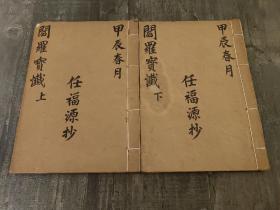 甲辰春月
任福源抄
閻羅寶懺 上
甲辰春月
任福源抄
閻羅寶懺 下